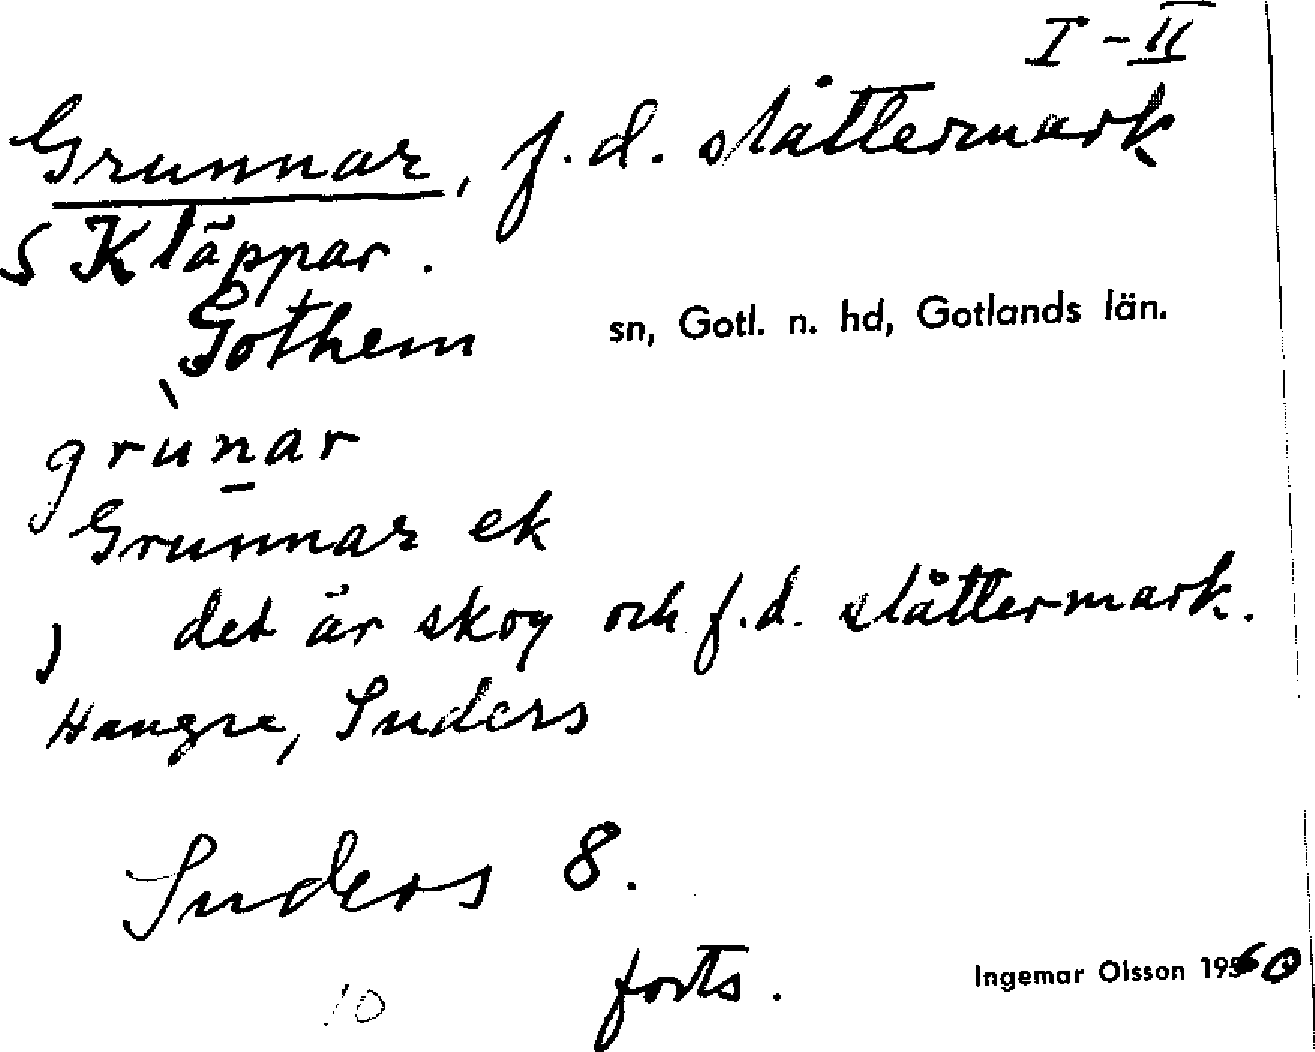 I-II
Grunnar, f.d. slåttermark
S Kläppar.
Gothem sn, Gotl. n. hd, Gotlands län.
grùn̲ar
Grunnar ek
) det är skog och f.d. slåttermark.
Hangre, Suders
Suders 8.
forts.
10
Ingemar Olsson 1960